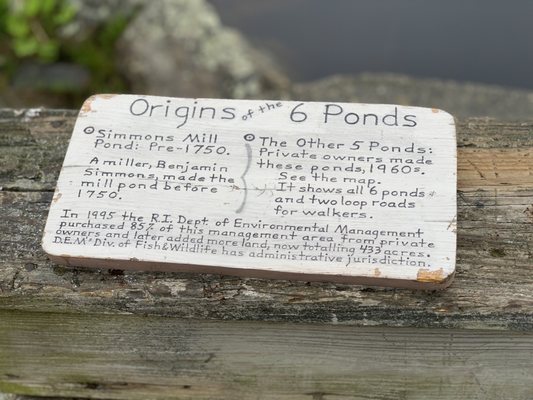 Origins of the 6 Ponds
Simmons Mill
Pond: Pre-1750.
A miller, Benjamin
Simmons, made the
mill pond before
1750.
The Other 5 Ponds:
Private owners made
these ponds, 1960s.
See the map.
It shows all 6 ponds
and two loop roads
for walkers.
In 1995 the R.I. Dept. of Environmental Management
purchased 85% of this management area from private
owners and later added more land, now totalling 433 acres.
D.E.M.'s Div. of Fish&Wildlife has administrative jurisdiction.